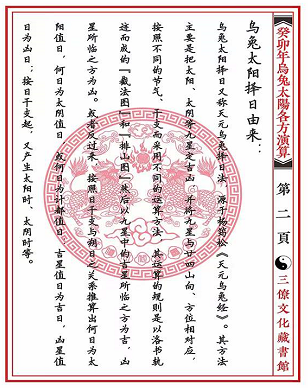 《癸卯年烏兔太陽各方演算》
第二頁
三僚文化藏書館
乌兔太阳择日由来：
乌兔太阳择日又称天元乌兔择日法，源于杨筠松《天元乌兔经》。其方法
主要是把太阳、太阴等九星定吉凶，并将九星与廿四山向、方位相对应，
按照不同的节气、干支而采用不同的运算方法，其运算的规则是以洛书轨
迹而成的“歠法图”和“排山图”，然后以九星中的吉星所临之方为吉，凶
星所临之方为凶。或者反过来，按照日干支与朔日之关系推算出何日为太
阳值日，何日为太阴值日，或何日为计都值日，吉星值日为吉日，凶星值
日为凶日；按日干支起，又产生太阳时、太阴时等。